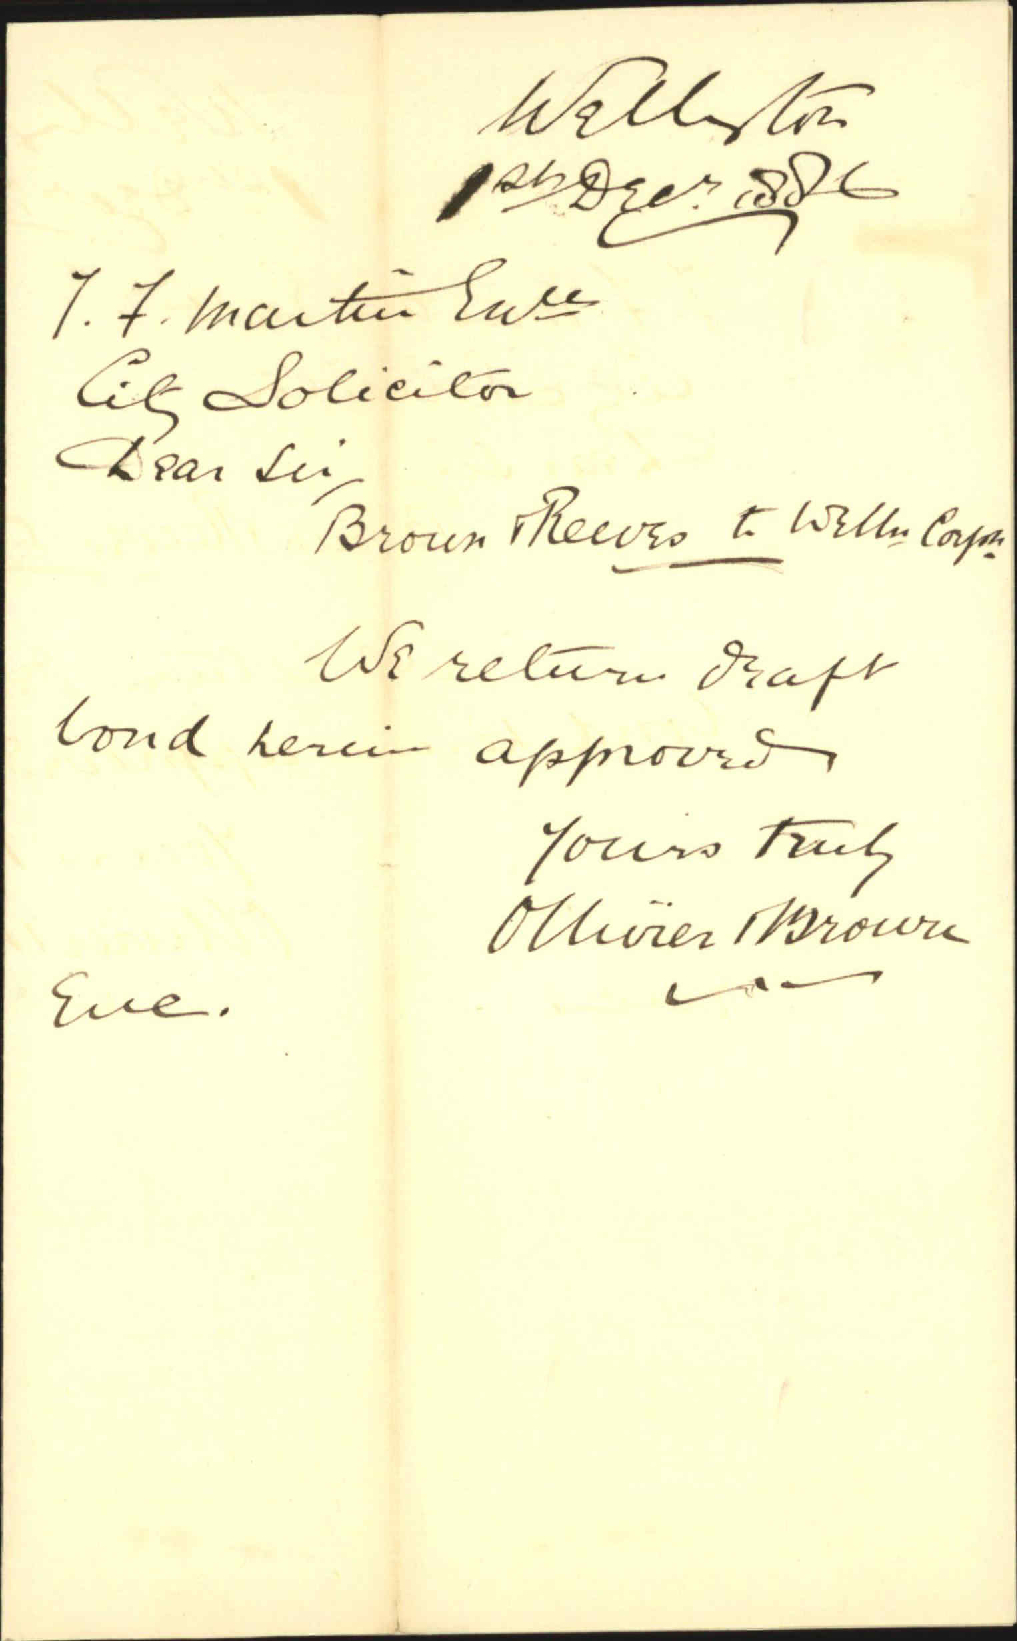 Wellington
1st Decr. 1886
T. F. Martin Esqre
City Solicitor
Dear Sir
Brown & Reeves to Welln Corpn.
We return draft
bond herein approved
Yours truly
Ollivier & Brown
Enc.